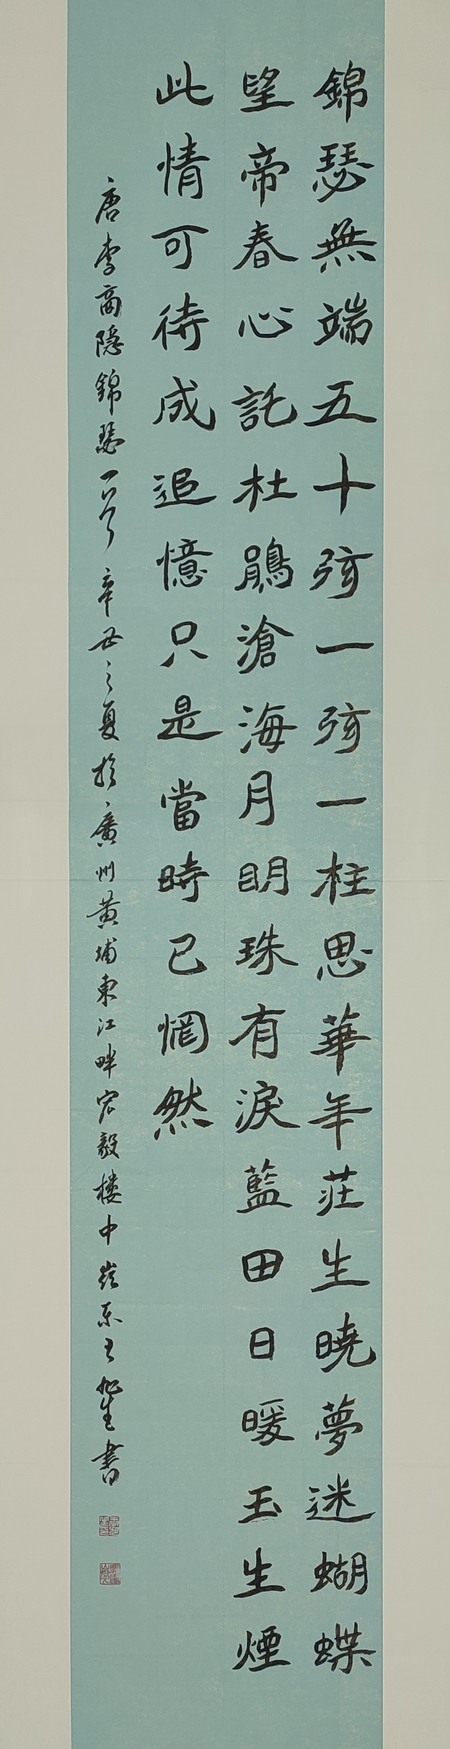 錦瑟無端五十弦一弦一柱思華年莊生曉夢迷蝴蝶
望帝春心託杜鵑滄海月明珠有淚藍田日暖玉生煙
此情可待成追憶只是當時已惘然
唐李商隱錦瑟一首辛丑之夏於廣州黃埔東江畔宏毅樓中嶺東王旭生書